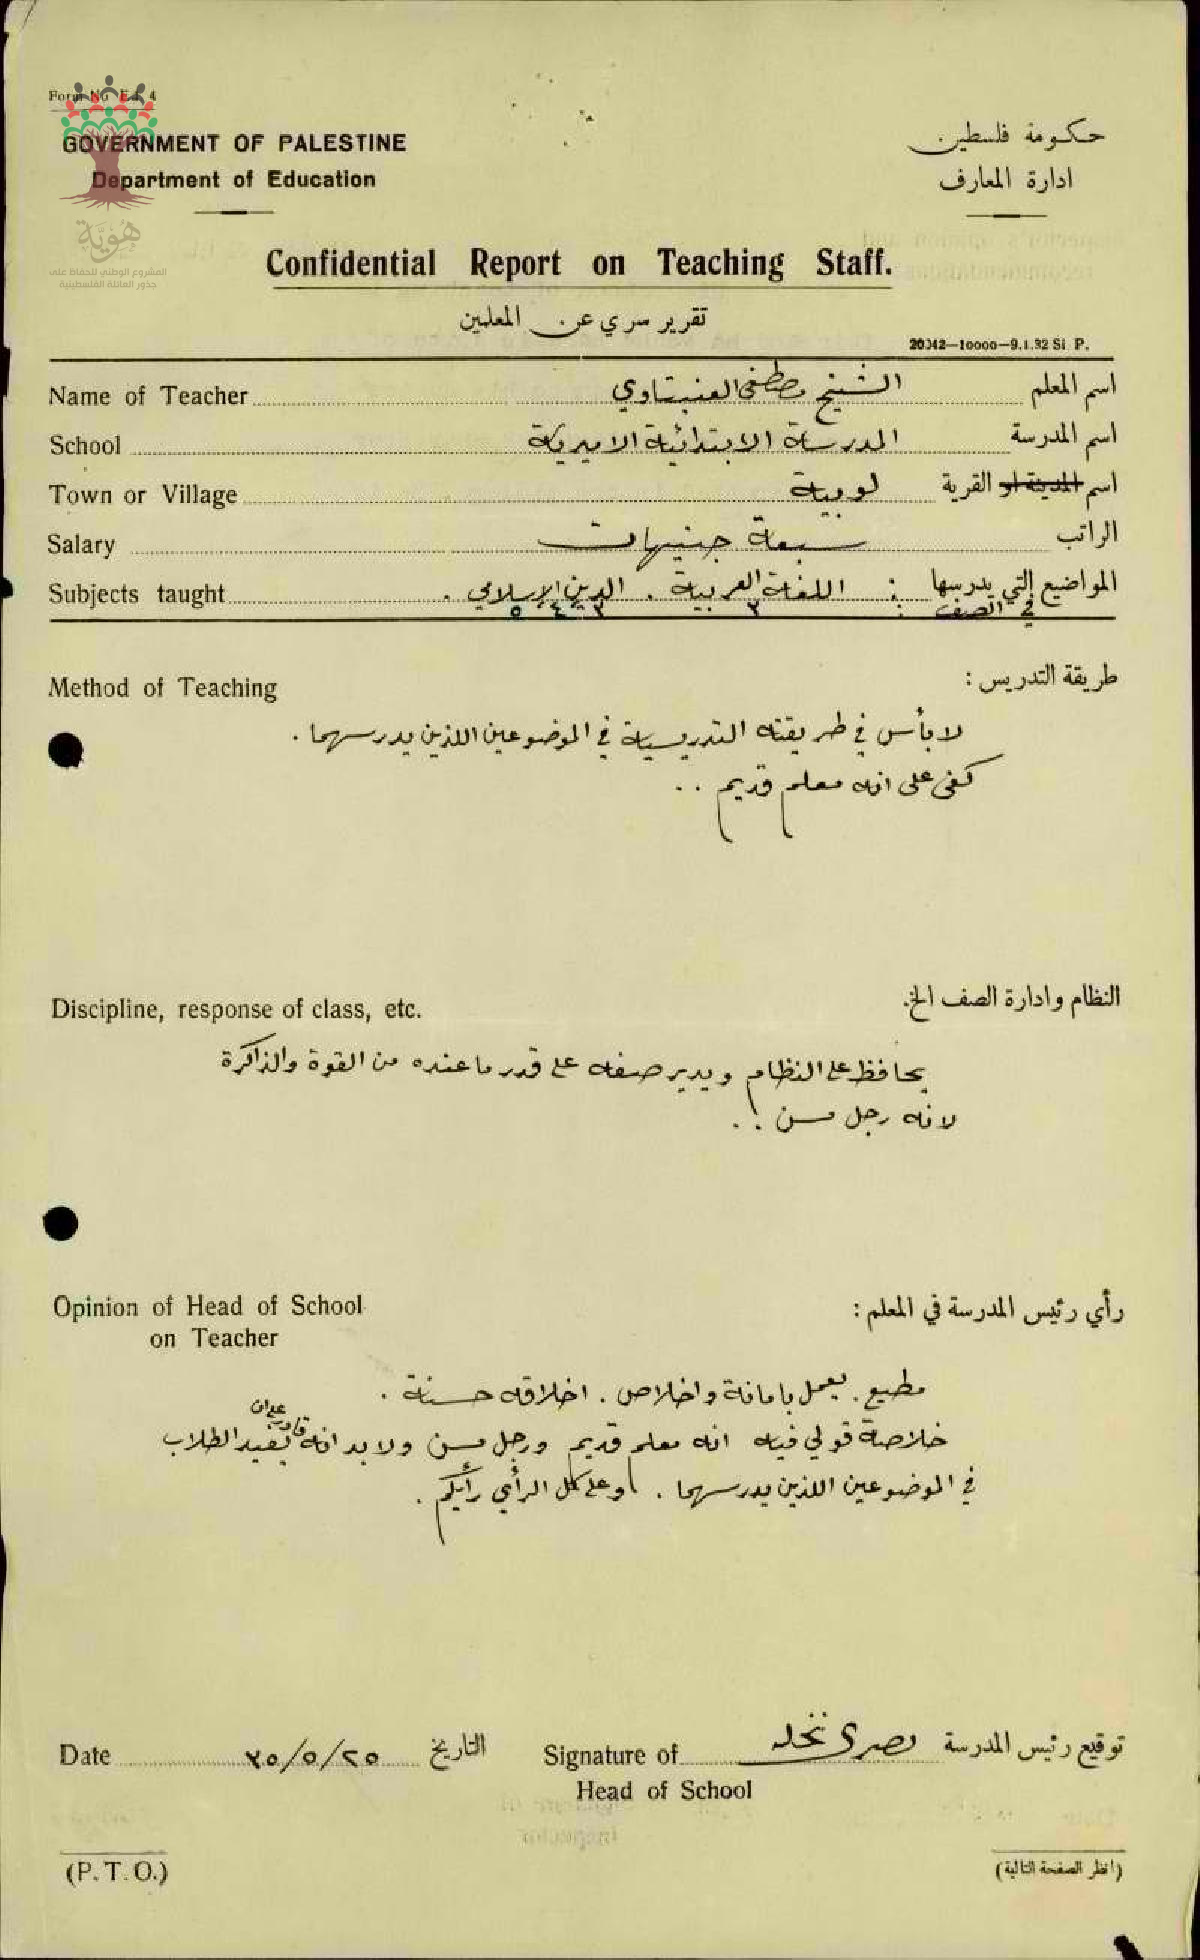 Form No Ed. 4
GOVERNMENT OF PALESTINE
Department of Education
حكومة فلسطين
ادارة المعارف
هُوِيَّة
المشروع الوطني للحفاظ على
جذور العائلة الفلسطينية
Confidential Report on Teaching Staff.
تقرير سري عن المعلمين
20342—10000—9.1.32 Si P.
Name of Teacher الشيخ مصطفى العنبتاوي اسم المعلم
School المدرسة الابتدائية الاميرية اسم المدرسة
Town or Village لوبية اسم المدينة او القرية
Salary سبعة جنيهات الراتب
Subjects taught اللغة العربية . الدين الإسلامي . : المواضيع التي يدرسها
في الصف : ٣ ٣ ٤ ٥
Method of Teaching طريقة التدريس :
لا بأس في طريقته التدريسية في الموضوعين اللذين يدرسهما .
كفى على انه معلم قديم . .
Discipline, response of class, etc. النظام وادارة الصف الخ.
يحافظ على النظام ويدير صفه على قدر ما عنده من القوة والذاكرة
لانه رجل مسن . .
Opinion of Head of School
on Teacher
رأي رئيس المدرسة في المعلم :
مطيع . يعمل بامانة واخلاص . اخلاقه حسنة .
خلاصة قولي فيه انه معلم قديم ورجل مسن ولا بد انه قادر على ان يفيد الطلاب
في الموضوعين اللذين يدرسهما . وعلى كل الرأي رأيكم .
Date ٣٥/٥/٢٥ التاريخ
Signature of نصري نخله توقيع رئيس المدرسة
Head of School
(P. T. O.)
(انظر الصفحة التالية)